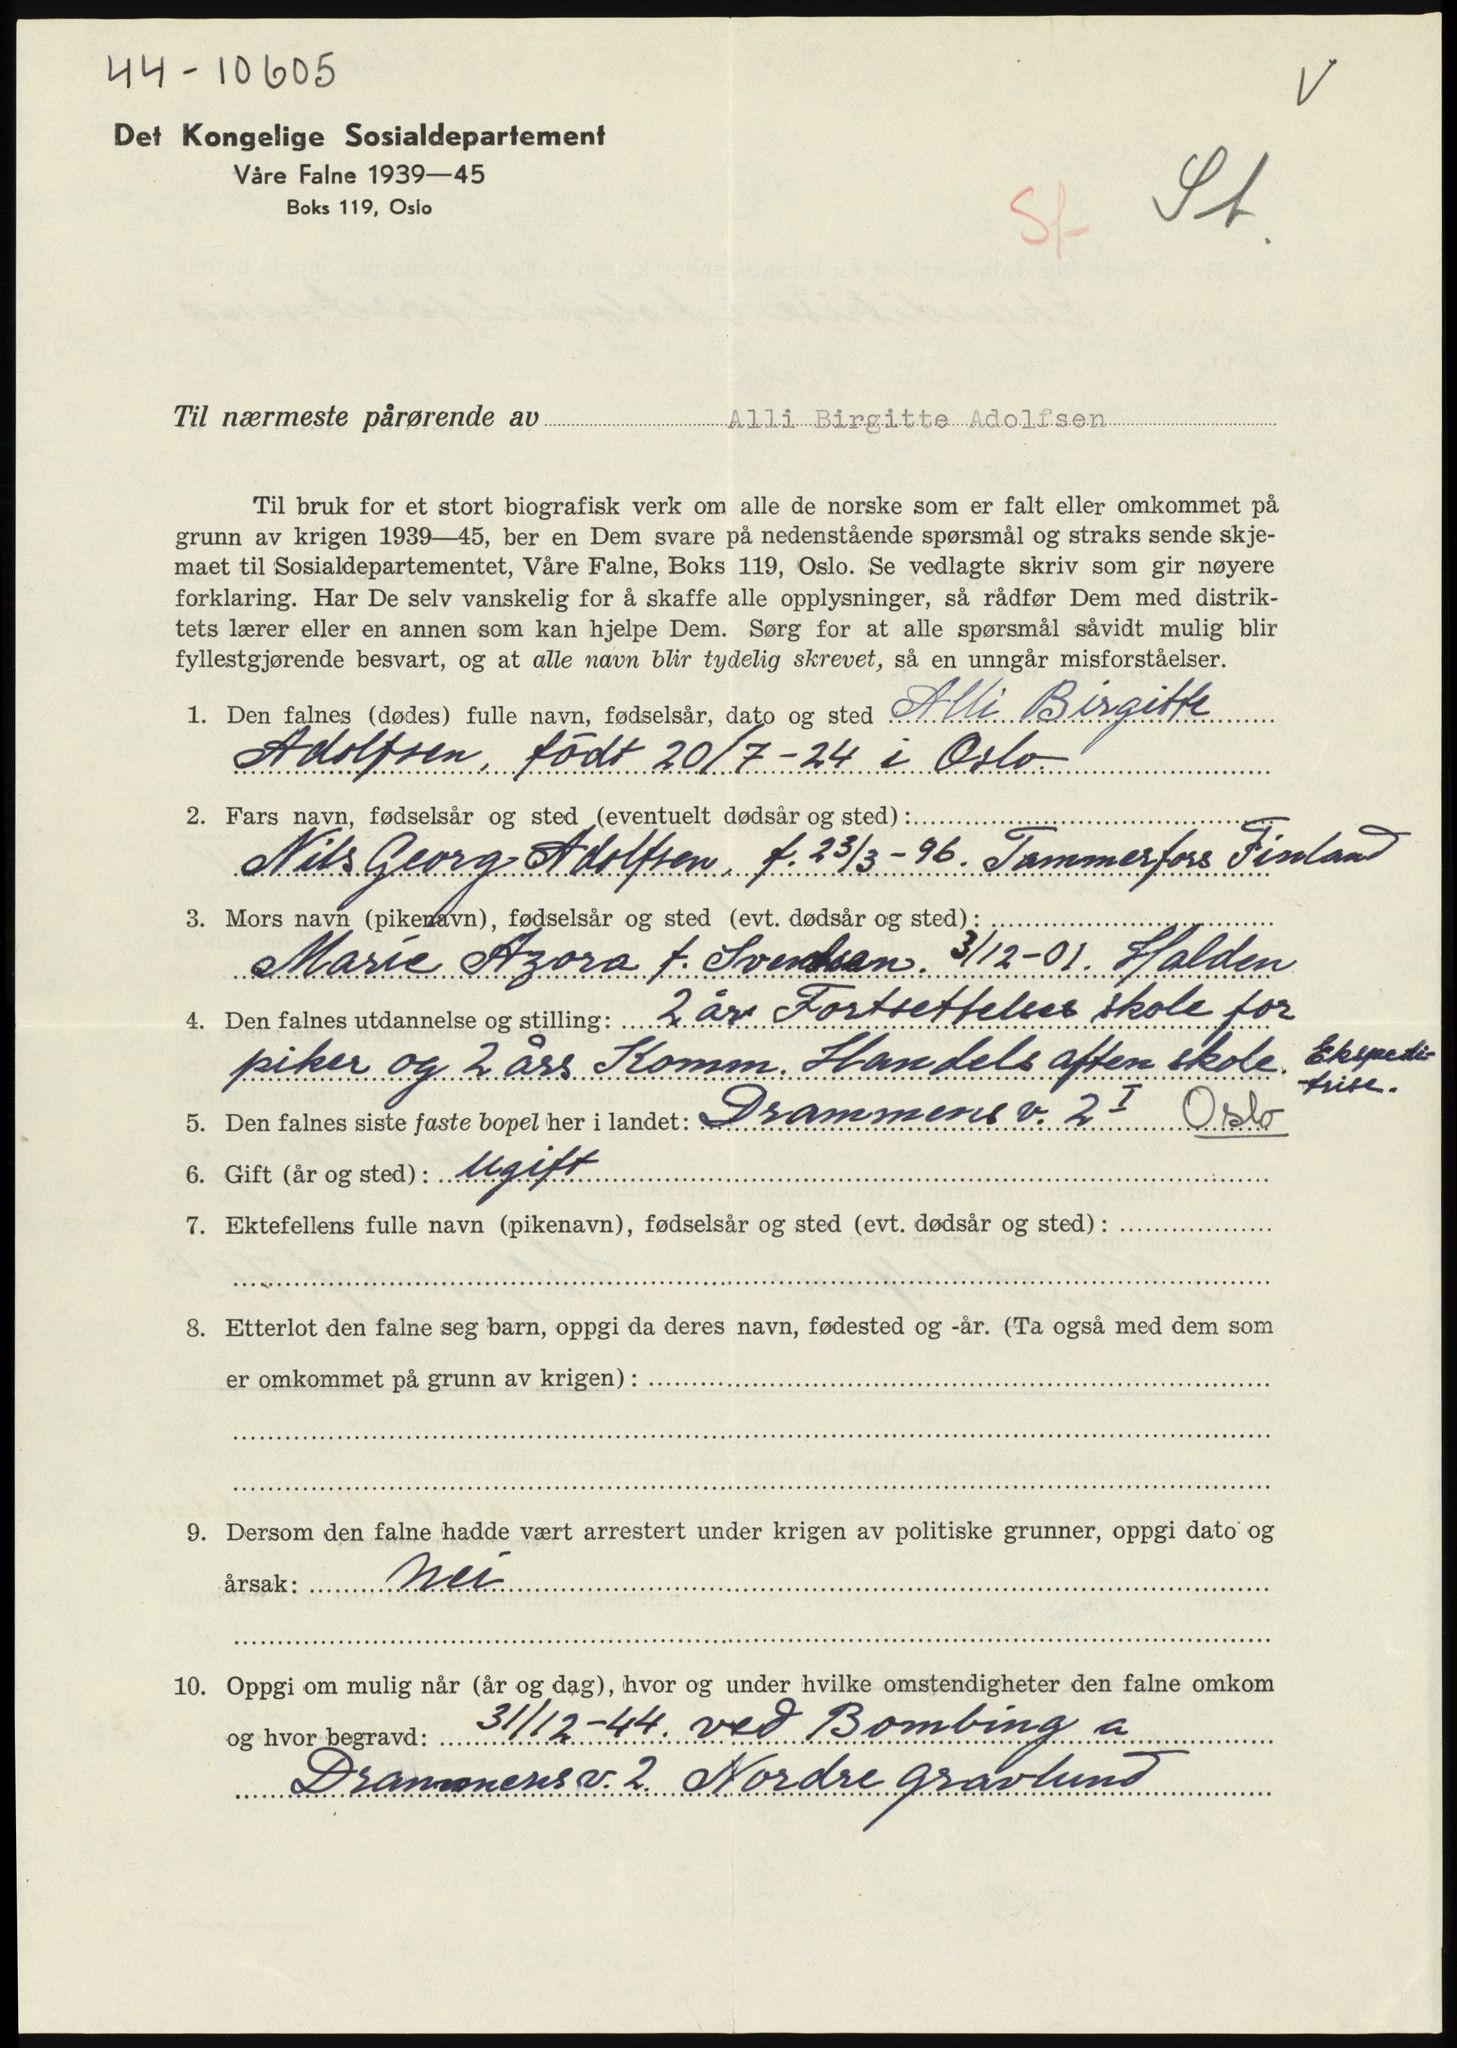 44-10605
V
Det Kongelige Sosialdepartement
Våre Falne 1939—45
Boks 119, Oslo
St St.
Til nærmeste pårørende av Alli Birgitte Adolfsen
Til bruk for et stort biografisk verk om alle de norske som er falt eller omkommet på
grunn av krigen 1939—45, ber en Dem svare på nedenstående spørsmål og straks sende skje-
maet til Sosialdepartementet, Våre Falne, Boks 119, Oslo. Se vedlagte skriv som gir nøyere
forklaring. Har De selv vanskelig for å skaffe alle opplysninger, så rådfør Dem med distrik-
tets lærer eller en annen som kan hjelpe Dem. Sørg for at alle spørsmål såvidt mulig blir
fyllestgjørende besvart, og at alle navn blir tydelig skrevet, så en unngår misforståelser.
1. Den falnes (dødes) fulle navn, fødselsår, dato og sted Alli Birgitte
Adolfsen, födt 20/7-24 i Oslo
2. Fars navn, fødselsår og sted (eventuelt dødsår og sted):
Nils Georg Adolfsen, f. 23/3-96. Tammerfors Finland
3. Mors navn (pikenavn), fødselsår og sted (evt. dødsår og sted):
Marie Azora f. Svendsen. 3/12-01. Halden
4. Den falnes utdannelse og stilling: 2 år Fortsettelses skole for
piker og 2 års Komm. Handels aften skole. Ekspedi-
trise.
5. Den falnes siste faste bopel her i landet: Drammens v. 2 I Oslo
6. Gift (år og sted): Ugift
7. Ektefellens fulle navn (pikenavn), fødselsår og sted (evt. dødsår og sted):
8. Etterlot den falne seg barn, oppgi da deres navn, fødested og -år. (Ta også med dem som
er omkommet på grunn av krigen):
9. Dersom den falne hadde vært arrestert under krigen av politiske grunner, oppgi dato og
årsak: Nei
10. Oppgi om mulig når (år og dag), hvor og under hvilke omstendigheter den falne omkom
og hvor begravd: 31/12-44. ved Bombing a
Drammens v. 2. Nordre gravlund